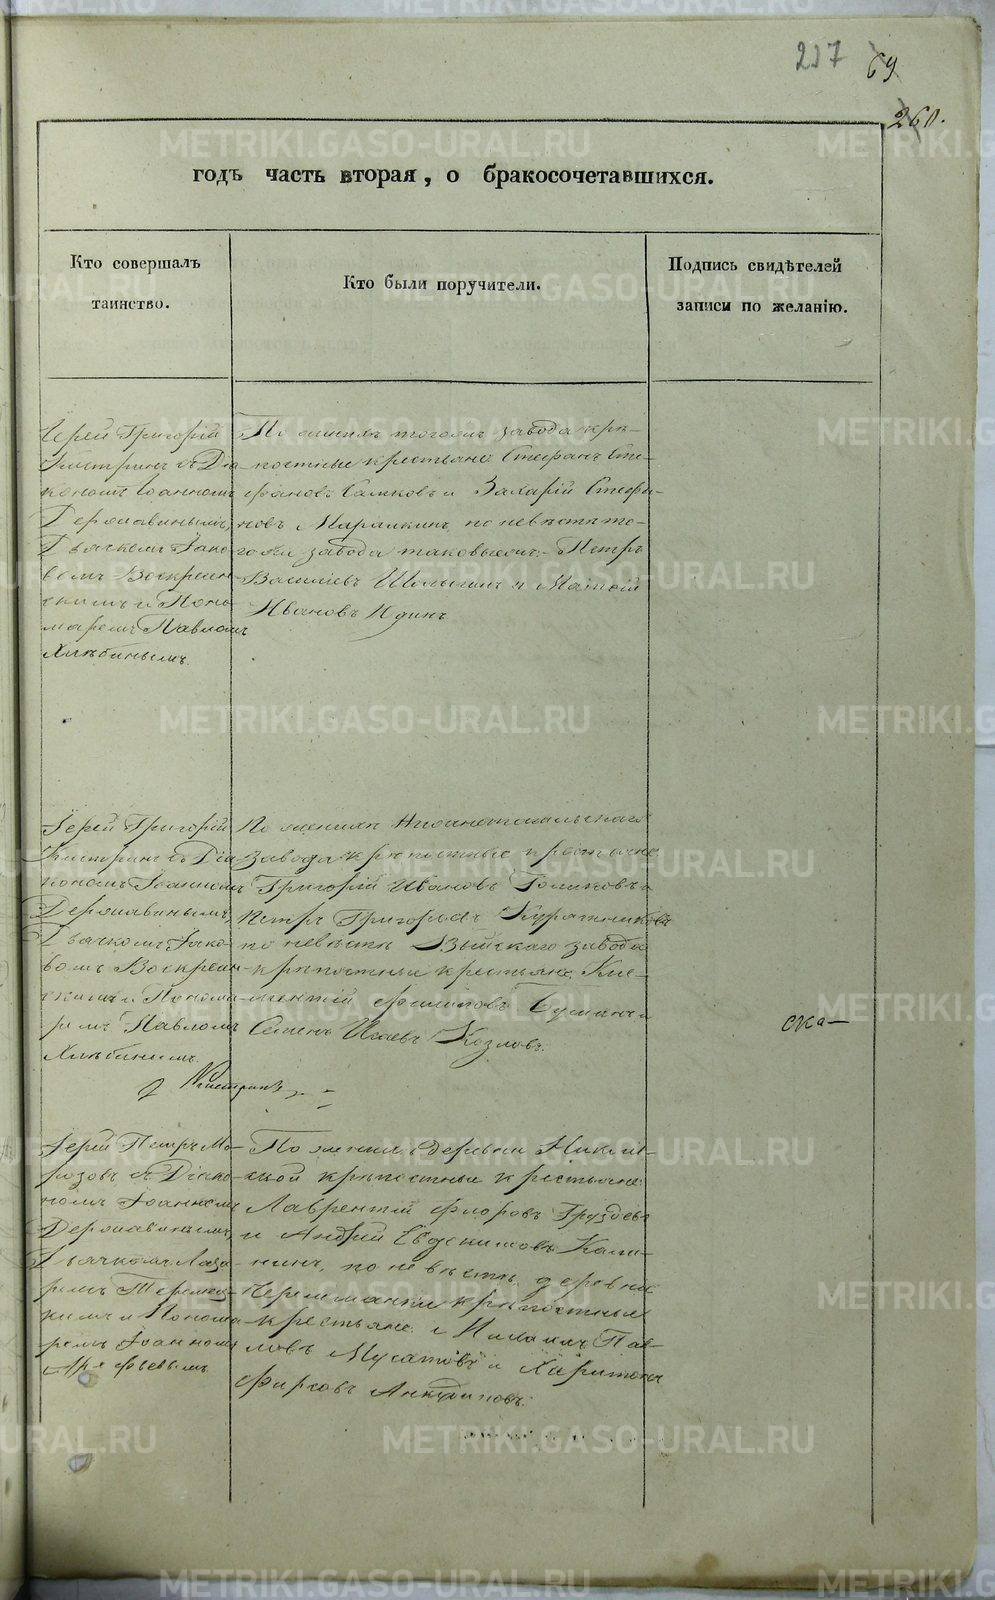 217 69
260.
годъ часть вторая, о бракосочетавшихся.
Кто совершалъ
таинство.
Кто были поручители.
Подпись свидѣтелей
записи по желанію.
Іерей Григорій
съ Діа
кономъ Іоанномъ
Державинымъ,
Дьячкомъ Іако
вомъ Воскресен
скимъ и Поно
маремъ Павломъ
Хлѣбинымъ.
По женихѣ тогожъ завода крѣ-
постные крестьяне Стефанъ Сте-
фановъ и Захарій Стефа-
новъ по невѣстѣ то-
гожъ завода таковыежъ: Петръ
Василіевъ и Матѳій
Ивановъ
Іерей Григорій
съ Діа
кономъ Іоанномъ
Державинымъ,
Дьячкомъ Іако-
вомъ Воскресен
скимъ и Понома
ремъ Павломъ
Хлѣбинымъ.
По женихѣ Нижнетагильскаго
завода крѣпостные крестьяне
Григорій Ивановъ Голиковъ и
Петръ Григорьевъ
по невѣстѣ Выйскаго завода
крѣпостные крестьяне Кли-
ментій Филиповъ и
Семенъ Исаевъ Козловъ.
Іерей Петръ Мо-
розовъ съ Діако-
номъ Іоанномъ
Державинымъ,
Дьячкомъ Лаза
ремъ
кимъ и Понома
ремъ Іоанномъ
Арефьевымъ.
По женихѣ деревни
ской крѣпостные крестьяне
Лаврентій Флоровъ Груздевъ
и Андрей Евдокимовъ Кали-
нинъ, по невѣстѣ деревни
Черемшанки крѣпостные
крестьяне: Михаилъ Пав-
ловъ Мусатовъ и Харитонъ
Фирсовъ Анкудиновъ.
METRIKI.GASO-URAL.RU